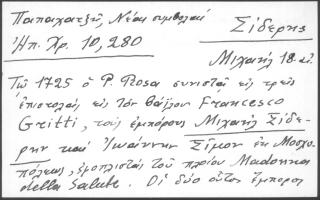 Παπαχατζῆ, Νέαι συμβολαί
Ἠπ. Χρ. 10, 280
Σίδερης
Μιχαήλ 18 αἰ.
Τῷ 1725 ὁ P. Rosa συνιστᾷ εἰς τρεῖς
ἐπιστολάς εἰς τόν βάϊλον Francesco
Gritti, τούς ἐμπόρους Μιχαήλ Σίδε-
ρην καί Ἰωάννην Σῖμον ἐκ Μοσχο-
πόλεως, τοῦ πλοίου Madonna
della Salute. Οἱ δύο οὗτοι ἔμποροι